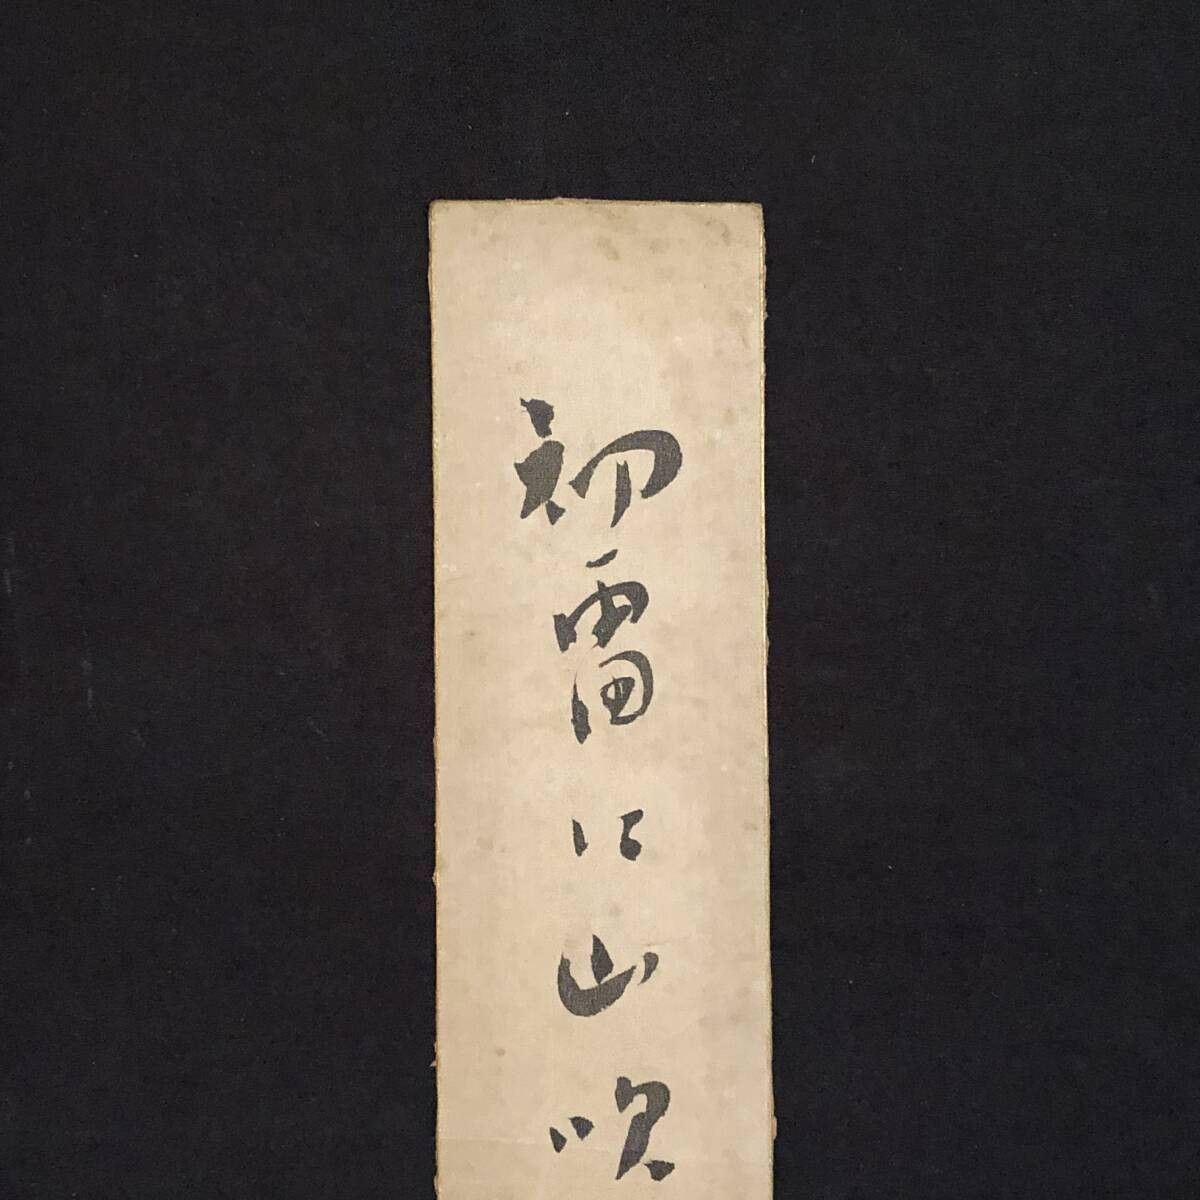 初雷に山吹